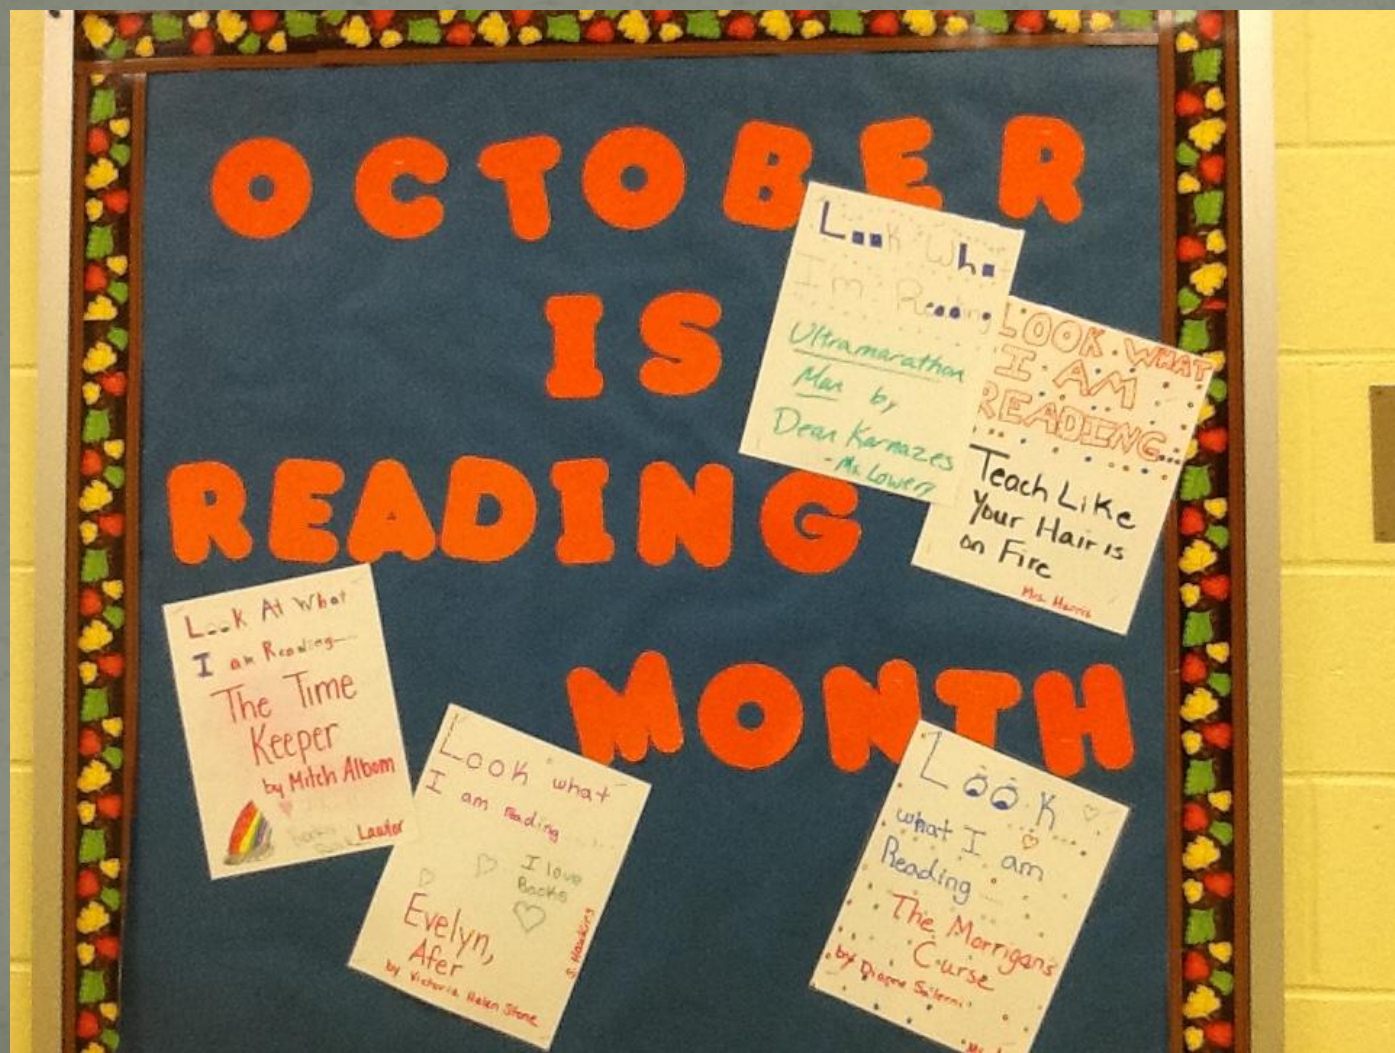 OCTOBER
IS
READING
MONTH
Look Wha
I'm Reading
Ultramarathon
Man by
Dean Karnazes
- Ms. Lowery
LOOK WHAT
I AM
READING...
Teach Like
Your Hair is
on Fire
Mrs. Harris
Look At What
I am Reading...
The Time
Keeper
by Mitch Albom
Lawler
Look what
I am reading
I love
Books
Evelyn,
Afer
by Victoria Helen Stone
S. Hawkins
Look
what I am
Reading
The Morrigan's
Curse
by Dianne Salerni